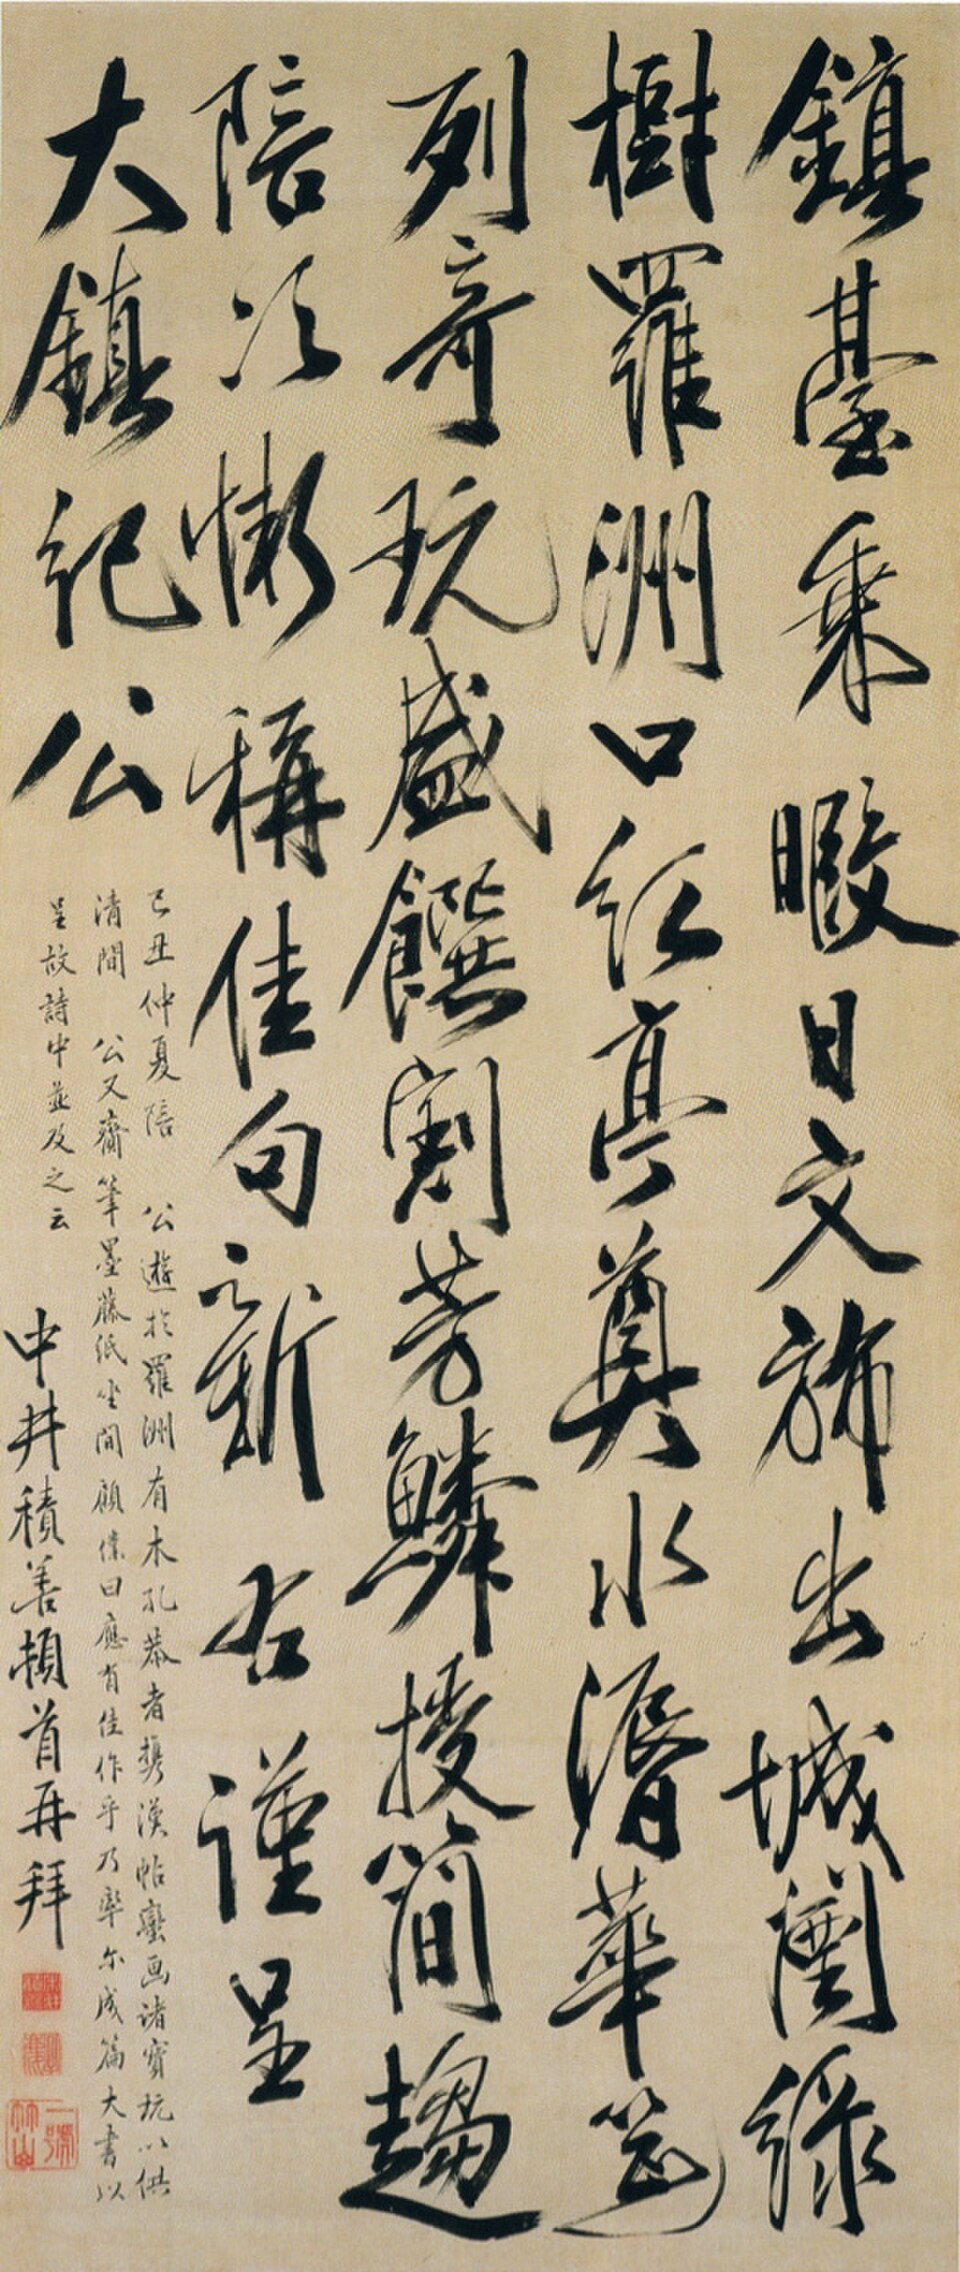 鎮臺乘暇日文旆出城闉緑
樹羅洲口紅亭奠水濱華筵
列奇玩盛饌割芳鱗授簡趨
陪次慚稱佳句新右謹呈
大鎮紀公
己丑仲夏陪公遊於羅洲有木孔恭者携漢帖蠻画諸寶玩以供
清間公又齎筆墨藤紙坐間顧僕曰應有佳作乎乃率尔成篇大書以
呈故詩中並及之云
中井積善頓首再拜